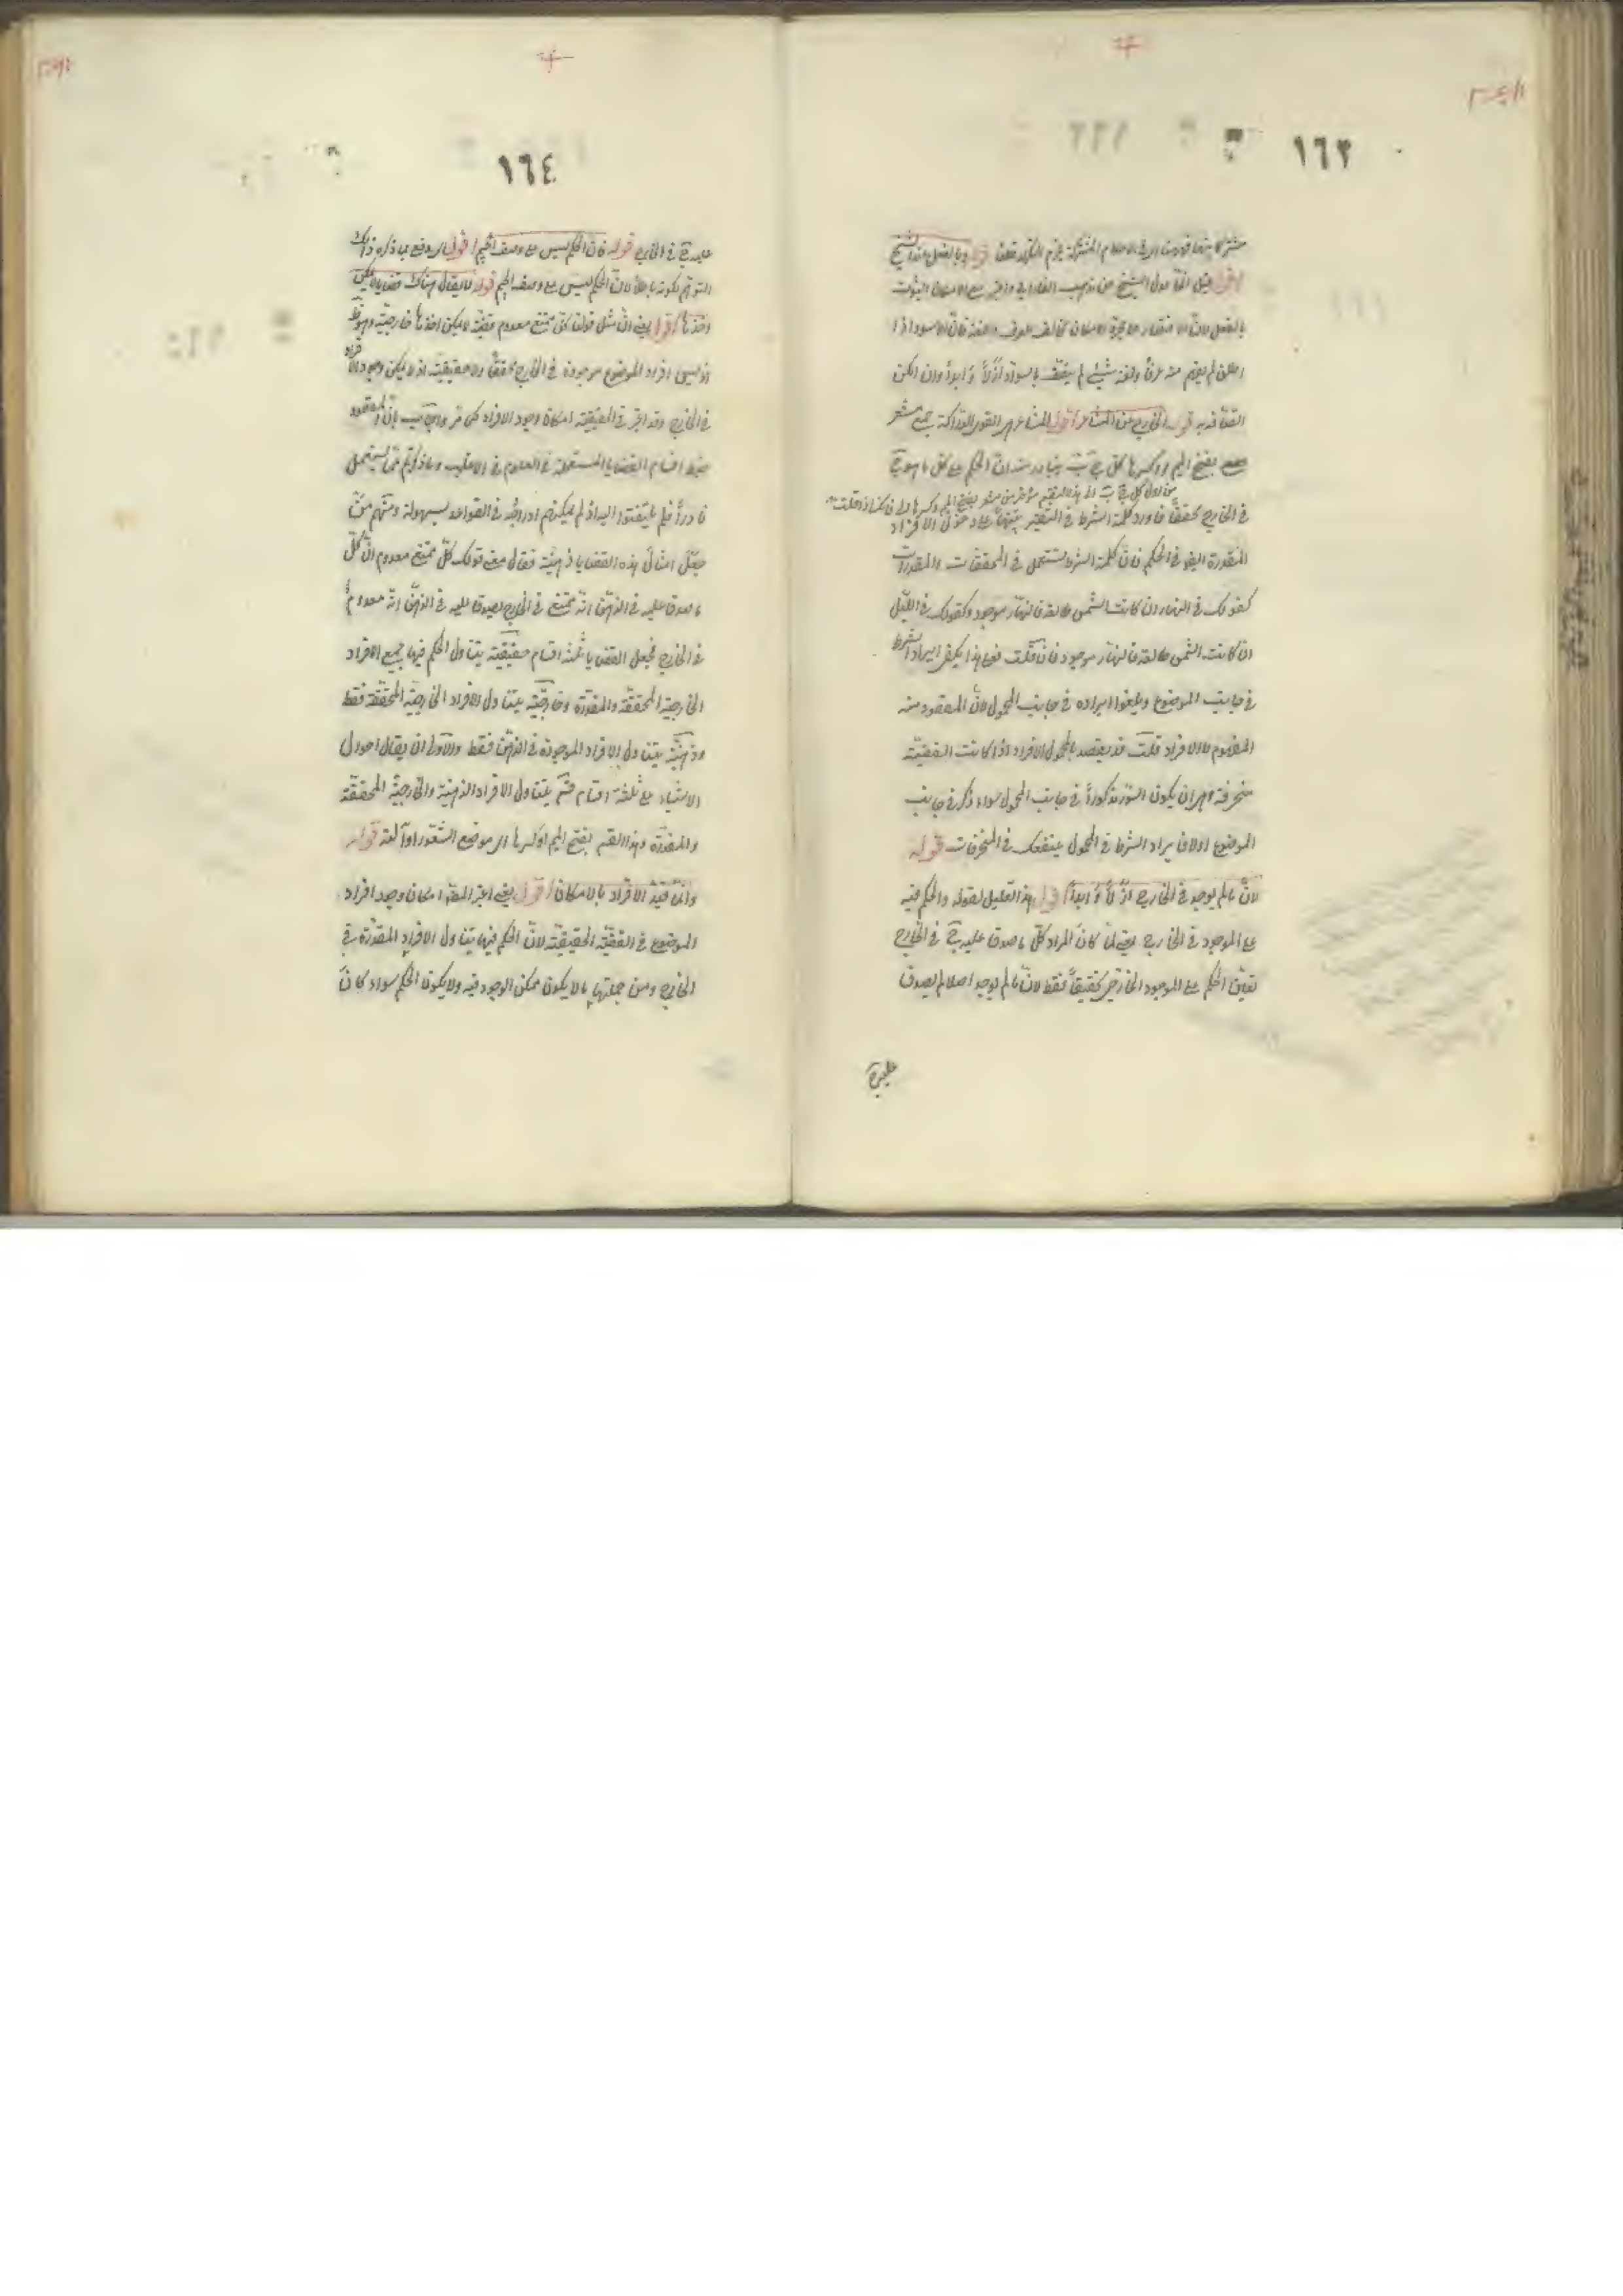 ١٦٣
بالفعل لانّ الاقتصار على مجرد الامكان مخالف للعرف واللغة فانّ الاسود اذا
اطلق لم يفهم منه عرفاً ولغة شيئ لم يتصف بالسواد ازلاً وابداً وان امكن
اتصافه به قوله الخارج عن المشاعر اقول المشاعر هى القوى الدراكة جمع مشعر
بفتح الميم وكسرها كل ج ب يتبادر منه انّ الحكم على كل ما هو ج
فى الخارج محققاً فاورد كلمة الشرط فى التفسير تنبيهاً على دخول الافراد
المقدرة ايضا فى الحكم فانّ كلمة الشرط تستعمل فى المحققات والمقدرات
كقولك فى النهار ان كانت الشمس طالعة فالنهار موجود وكقولك فى الليل
ان كانت الشمس طالعة فالنهار موجود فان قلت فعلى هذا يكفى ايراد الشرط
فى جانب الموضوع ويلغوا ايراده فى جانب المحمول لانّ المقصود منه
المفهوم لا الافراد قلت قد يقصد بالمحمول الافراد اذا كانت القضيّة
منحرفة وهى ان يكون السور مذكوراً فى جانب المحمول سواء ذكر فى جانب
الموضوع اولا فايراد الشرط فى المحمول ينفعك فى المنحرفات قوله
لانّ ما لم يوجد فى الخارج ازلاً وابداً اقول هذا تعليل لقوله والحكم فيه
على الموجود فى الخارج يعنى لمّا كان المراد كلّ ما صدق عليه ج فى الخارج
تعيّن الحكم على الموجود الخارجى تحقيقاً فقط لانّ ما لم يوجد اصلا لم يصدق
عليه ج
١٦٤
عليه ج فى الخارج قوله فانّ الحكم ليس على وصف الجيم اقول اى دفع بما ذكره ذلك
التوهم بكونه باطلاً لانّ الحكم ليس على وصف الجيم قوله لا يقال هناك قضايا لا يمكن
اخذها اقول يعنى انّ مثل قولنا كل ممتنع معدوم قضيّة لا يمكن اخذها خارجيّة وهو ظ
اذ ليس افراد الموضوع موجودة فى الخارج محققاً ولا حقيقية اذ لا يمكن وجود الافراد
فى الخارج وقد اعتبر فى الحقيقيّة امكان وجود الافراد كما مرّ واجيب بانّ المقصود
ضبط اقسام القضايا المستعملة فى العلوم فى الاغلب وما ذكرتم ممّا يستعمل
نادراً فلم يلتفتوا اليه اذ لم يمكنهم ادراجه فى القواعد بسهولة ومنهم من
جعل امثال هذه القضايا ذهنيّة فقال معنى قولك كلّ ممتنع معدوم انّ كلّ
ما صدق عليه فى الذهن انّه ممتنع فى الخارج يصدق عليه فى الذهن انّه معدوم
فى الخارج فجعل القضايا ثلثة اقسام حقيقيّة يتناول الحكم فيها جميع الافراد
الخارجيّة المحققة والمقدّرة وخارجيّة يتناول الافراد الخارجيّة المحققة فقط
وذهنيّة يتناول الافراد الموجودة فى الذهن فقط والاولى ان يقال احوال
الاشياء على ثلثة اقسام قسم يتناول الافراد الذهنيّة والخارجيّة المحققة
والمقدّرة وهذا القسم بفتح الميم او كسرها اى موضع الشعور او آلته قوله
وانّما قيّد الافراد بالامكان اقول يعنى اعتبر امكان وجود افراد
الموضوع فى القضيّة الحقيقيّة لانّ الحكم فيها يتناول الافراد المقدّرة فى
الخارج ومن جملتها ما لا يكون ممكن الوجود فيه ولا يكون الحكم سواء كان